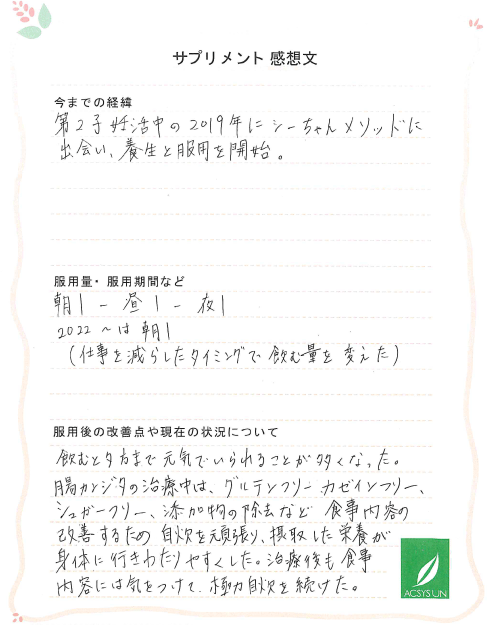 サプリメント 感想文
今までの経緯
第2子 妊活中の2019年にシーちゃんメソッドに
出会い、養生と服用を開始。
服用量・服用期間など
朝1 - 昼1 - 夜1
2022 ~は 朝1
(仕事を減らしたタイミングで 飲む量を 変えた)
服用後の改善点や現在の状況について
飲むと夕方まで元気でいられることが多くなった。
腸カンジダの治療中は、グルテンフリー カゼインフリー、
シュガーフリー、添加物の除去など 食事内容の
改善するため 自炊を頑張り、摂取した栄養が
身体に行きわたりやすくした。治療後も食事
内容には気をつけて、極力自炊を続けた。
ACSYSUN